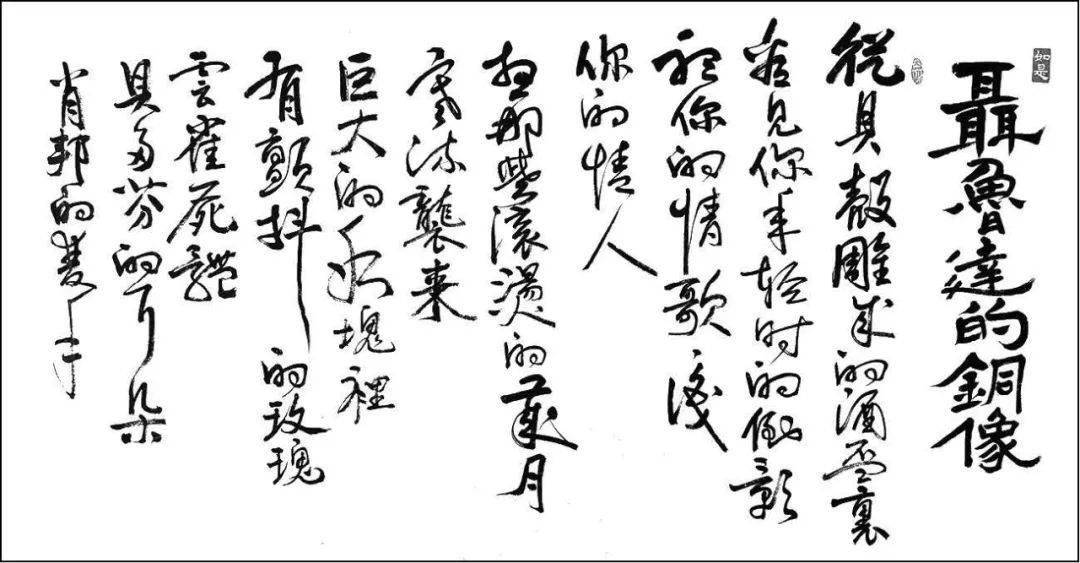 如是
聶魯達的銅像
從貝殼雕成的酒盃裏
看見你年輕時的倒影
你的情歌
你的情人
那些滾燙的歲月
寒流襲來
巨大的冰塊裡
有顫抖的玫瑰
雲雀屍體
貝多芬的耳朵
肖邦的雙手